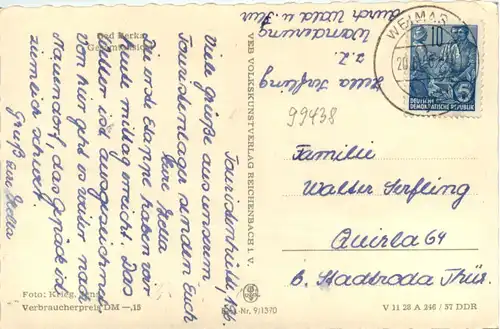 Bad Berka
Gesamtansicht
Touristenhütte, 15.6.
Viele Grüße aus unserem
Touristenlager senden Euch
Eure Hella
Die erste Etappe haben wir
heute mittag erreicht. Das
Wetter ist ausgezeichnet.
Von hier geht es weiter nach
Nauendorf, das Gepäck ist
ziemlich schwer.
Gruß eure Hella
Foto: Krieg, Jena
Verbraucherpreis DM —,15
VEB VOLKSKUNSTVERLAG REICHENBACH I. V.
Best.-Nr. 9/1370
Hella Serfling
z. Z.
Wanderung
durch Wald u. Flur
WEIMAR
10
DEUTSCHE
DEMOKRATISCHE REPUBLIK
99438
Familie
Walter Serfling
Quirla 64
b. Stadtroda Thür.
V 11 28 A 246 / 57 DDR